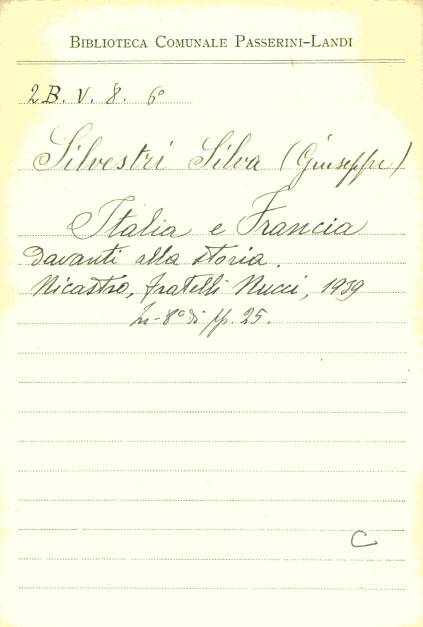 BIBLIOTECA COMUNALE PASSERINI-LANDI
2B. V. 8. 6°
Silvestri Silva (Giuseppe)
Italia e Francia
davanti alla storia.
Nicastro, fratelli Nucci, 1939
In-8° di pp. 25.
C